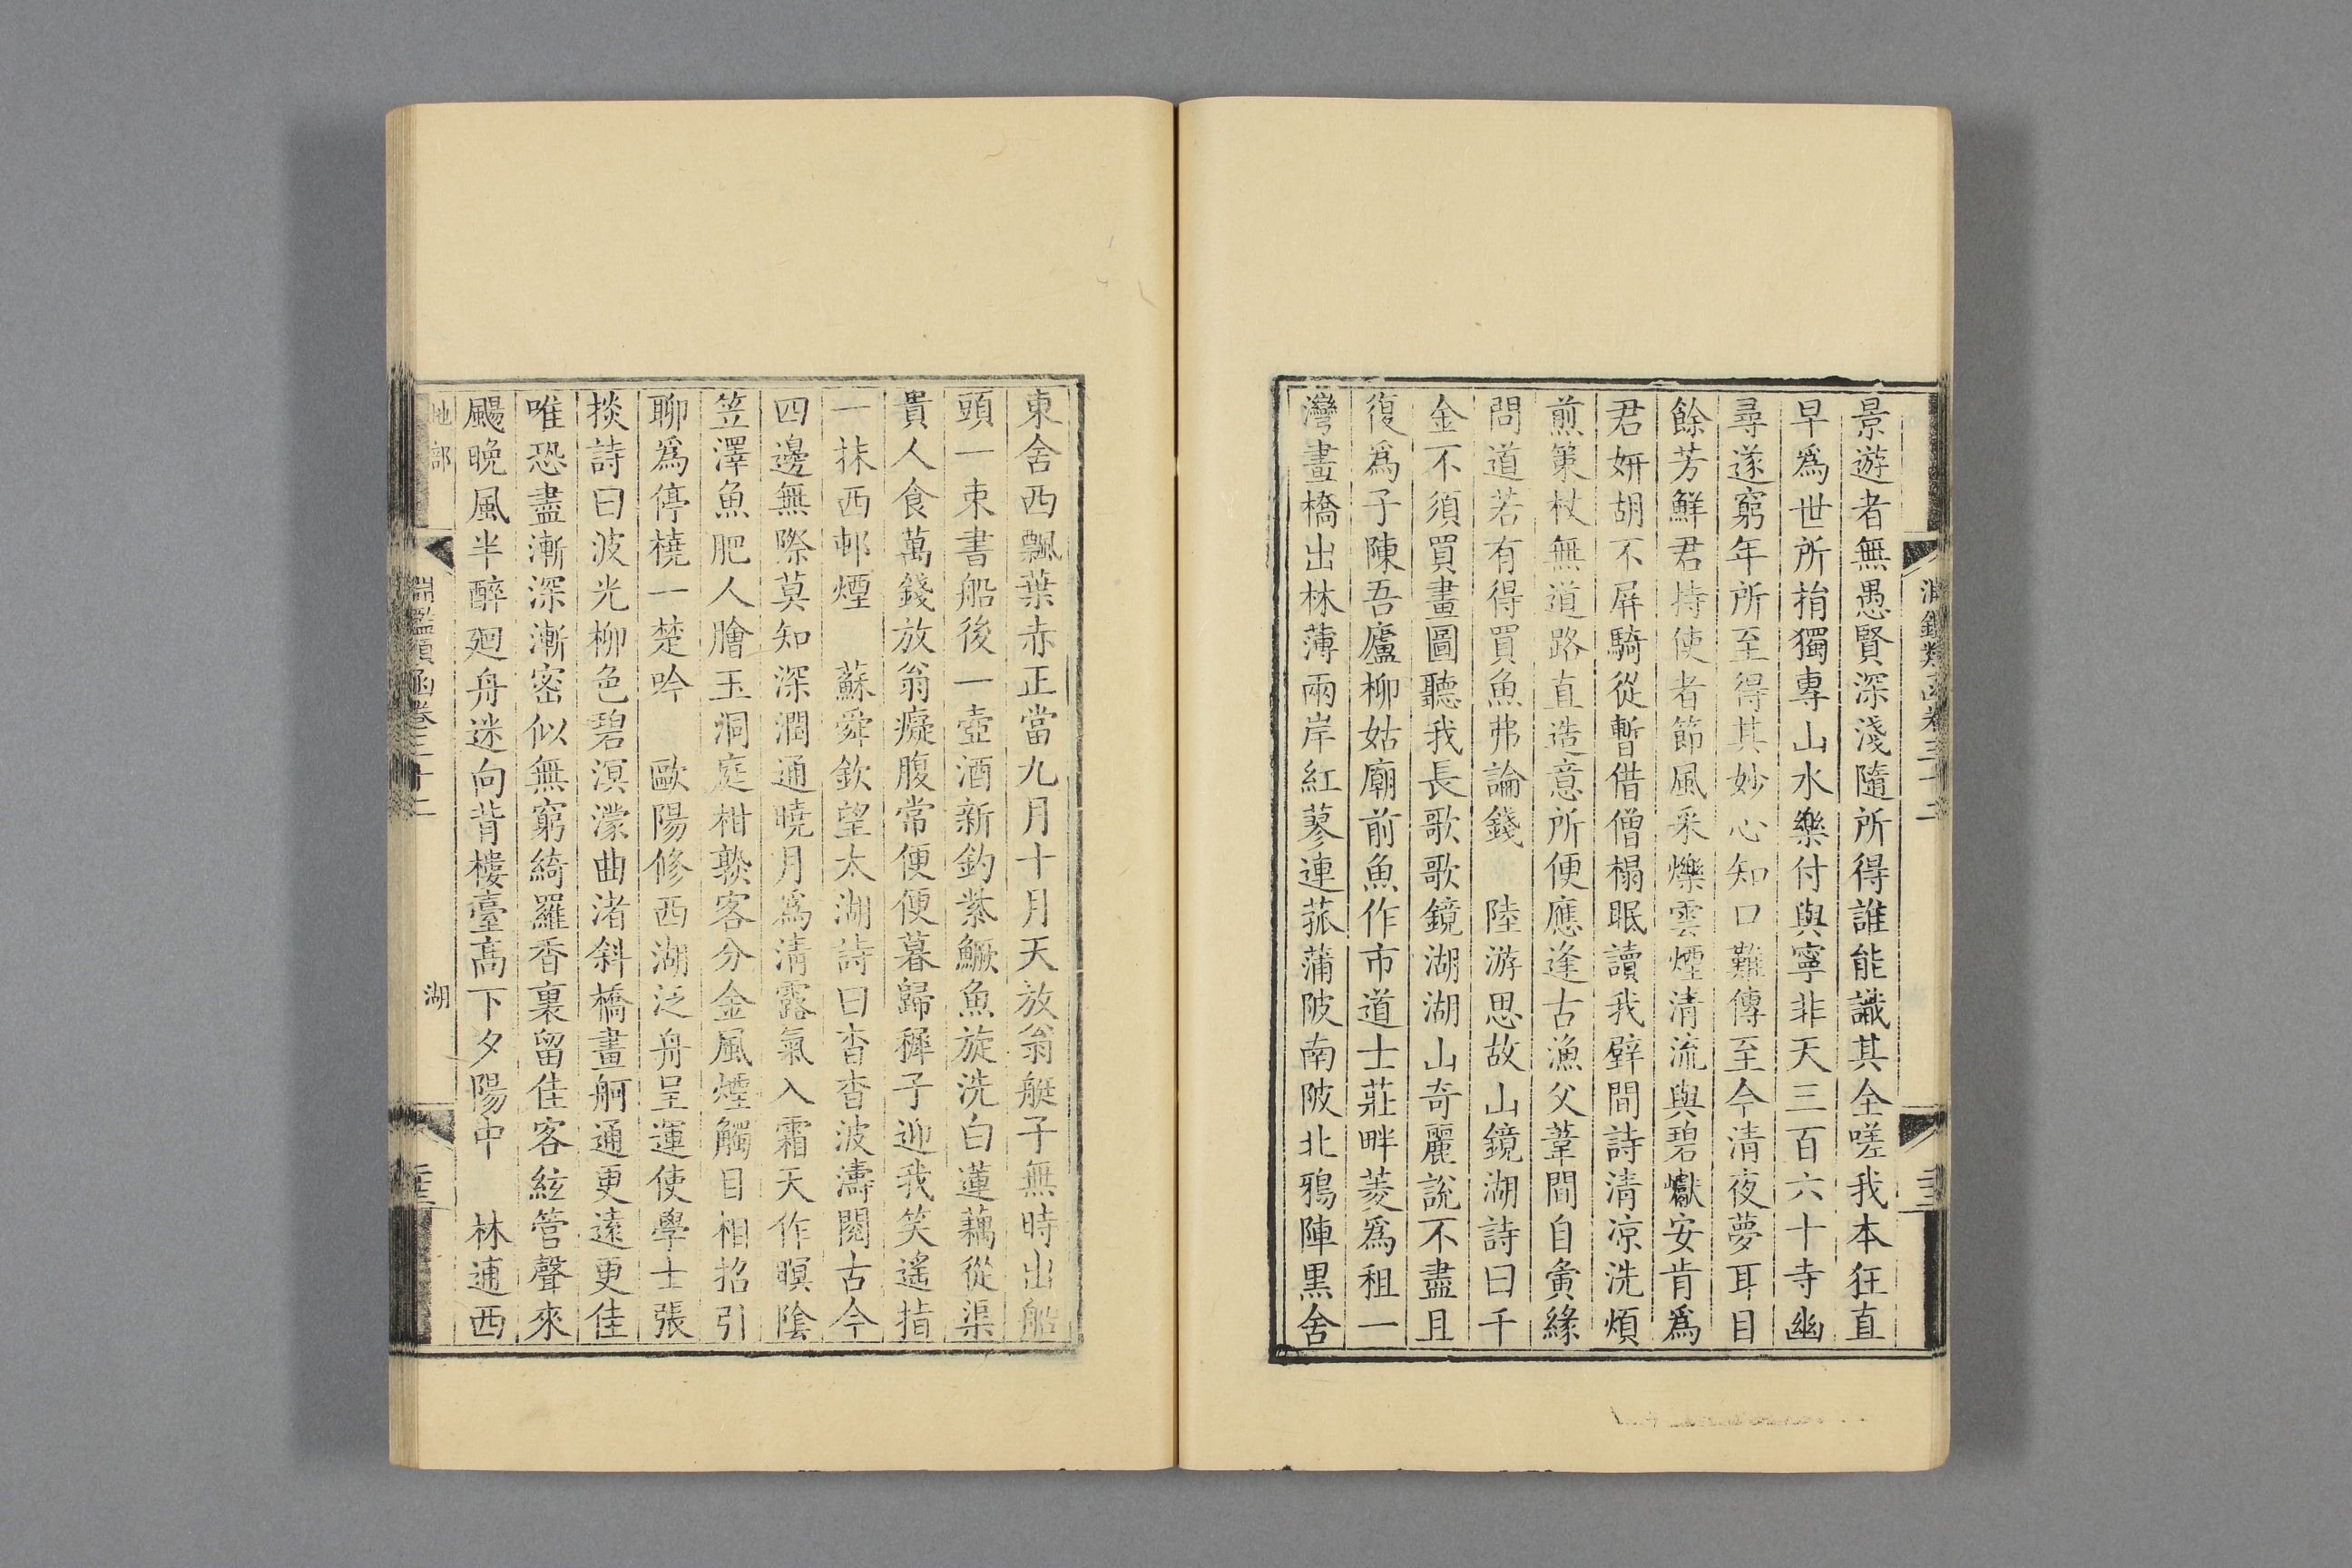 淵鑑類函卷三十二
景遊者無愚賢深淺隨所得誰能識其全嗟我本狂直
早爲世所捐獨專山水樂付與寧非天三百六十寺幽
尋遂窮年所至得其妙心知口難傳至今清夜夢耳目
餘芳鮮君持使者節風采爍雲煙清流與碧巘安肯爲
君妍胡不屏騎從暫借僧榻眠讀我壁間詩清凉洗煩
煎策杖無道路直造意所便應逢古漁父葦間自夤緣
問道若有得買魚弗論錢　陸游思故山鏡湖詩曰千
金不須買畫圖聽我長歌歌鏡湖湖山奇麗說不盡且
復爲子陳吾廬柳姑廟前魚作市道士莊畔菱爲租一
灣畫橋出林薄兩岸紅蓼連菰蒲陂南陂北鴉陣黑舍
東舍西飄葉赤正當九月十月天放翁艇子無時出船
頭一束書船後一壺酒新釣紫鱖魚旋洗白蓮藕從渠
貴人食萬錢放翁癡腹常便便暮歸稺子迎我笑遙指
一抹西邨煙　蘇舜欽望太湖詩曰杳杳波濤閱古今
四邊無際莫知深潤通曉月爲清露氣入霜天作暝陰
笠澤魚肥人膾玉洞庭柑熟客分金風煙觸目相招引
聊爲停橈一楚吟　歐陽修西湖泛舟呈運使學士張
掞詩曰波光柳色碧溟濛曲渚斜橋畫舸通更遠更佳
唯恐盡漸深漸密似無窮綺羅香裏留佳客絃管聲來
颺晚風半醉迴舟迷向背樓臺高下夕陽中　林逋西
地部　淵鑑類函卷三十二　湖